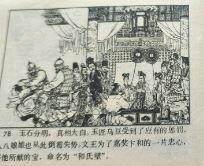 78 玉石分明，真相大白。玉匠乌豆受到了应有的惩罚，
八娘娘也从此倒霉失势。文王为了嘉奖卞和的一片忠心，
他所献的宝，命名为“和氏璧”